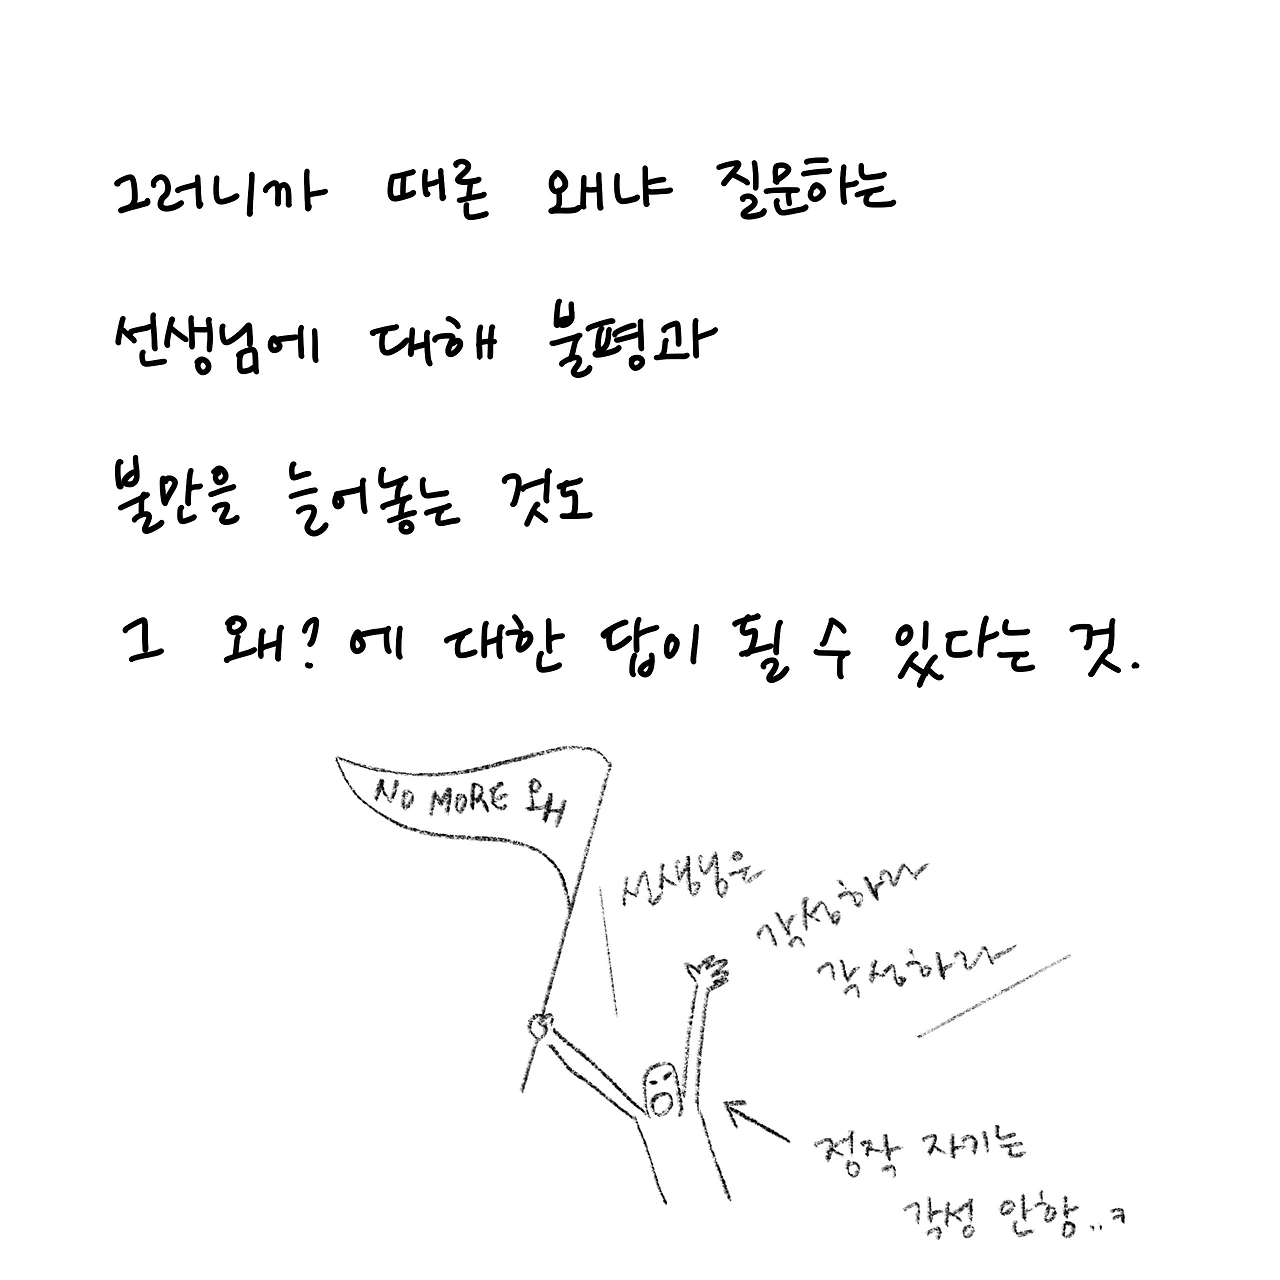 그러니까 때론 왜냐 질문하는
선생님에 대해 불평과
불만을 늘어놓는 것도
그 왜? 에 대한 답이 될 수 있다는 것.
NO MORE 왜
선생님은
각성하라
각성하라
정작 자기는
각성 안함..ㅋ